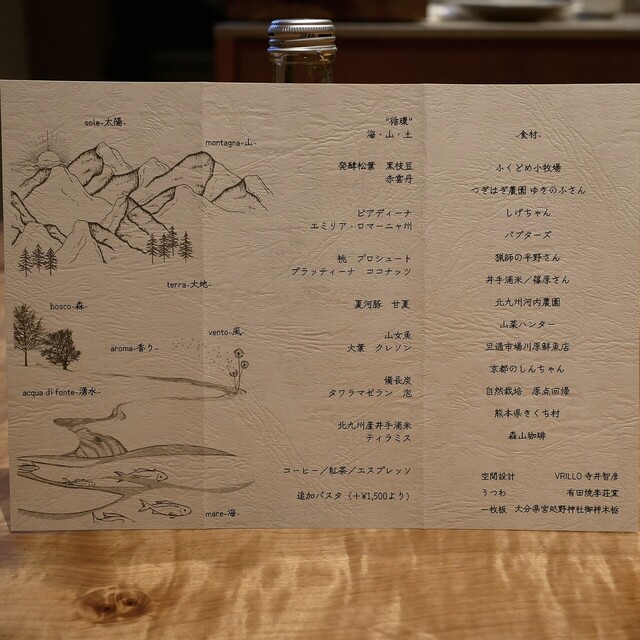 sole-太陽-
montagna-山-
terra-大地-
bosco-森-
vento-風-
aroma-香り-
acqua di fonte-湧水-
mare-海-
“循環”
海・山・土
発酵松葉 黒枝豆
赤雲丹
ピアディーナ
エミリア・ロマーニャ州
桃 プロシュート
ブラッティーナ ココナッツ
夏河豚 甘夏
山女魚
大葉 クレソン
備長炭
タワラマゼラン 泡
北九州産井手浦米
ティラミス
コーヒー/紅茶/エスプレッソ
追加パスタ(+¥1,500より)
-食材-
ふくどめ小牧場
つぎはぎ農園 ゆきのふさん
しげちゃん
パプターズ
猟師の平野さん
井手浦米/篠原さん
北九州河内農園
山菜ハンター
旦過市場川原鮮魚店
京都のしんちゃん
自然栽培 原点回帰
熊本県きくち村
森山珈琲
空間設計 VRILLO 寺井智彦
うつわ 有田焼李荘窯
一枚板 大分県宮処野神社御神木栃